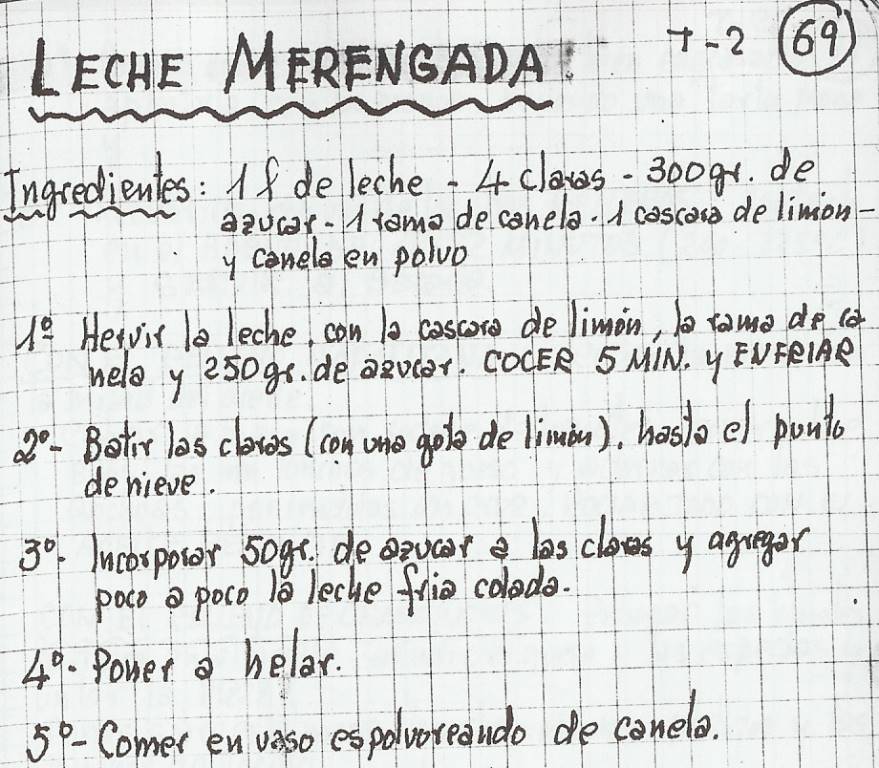 LECHE MERENGADA T-2 69
Ingredientes: 1 l de leche - 4 claras - 300 gr. de
azucar - 1 rama de canela - 1 cascara de limón -
y canela en polvo
1º Hervir la leche, con la cascara de limón, la rama de ca
nela y 250 gr. de azucar. COCER 5 MIN. y ENFRIAR
2º- Batir las claras (con una gota de limón), hasta el punto
de nieve.
3º- Incorporar 50 gr. de azucar a las claras y agregar
poco a poco la leche fria colada.
4º- Poner a helar.
5º- Comer en vaso espolvoreando de canela.